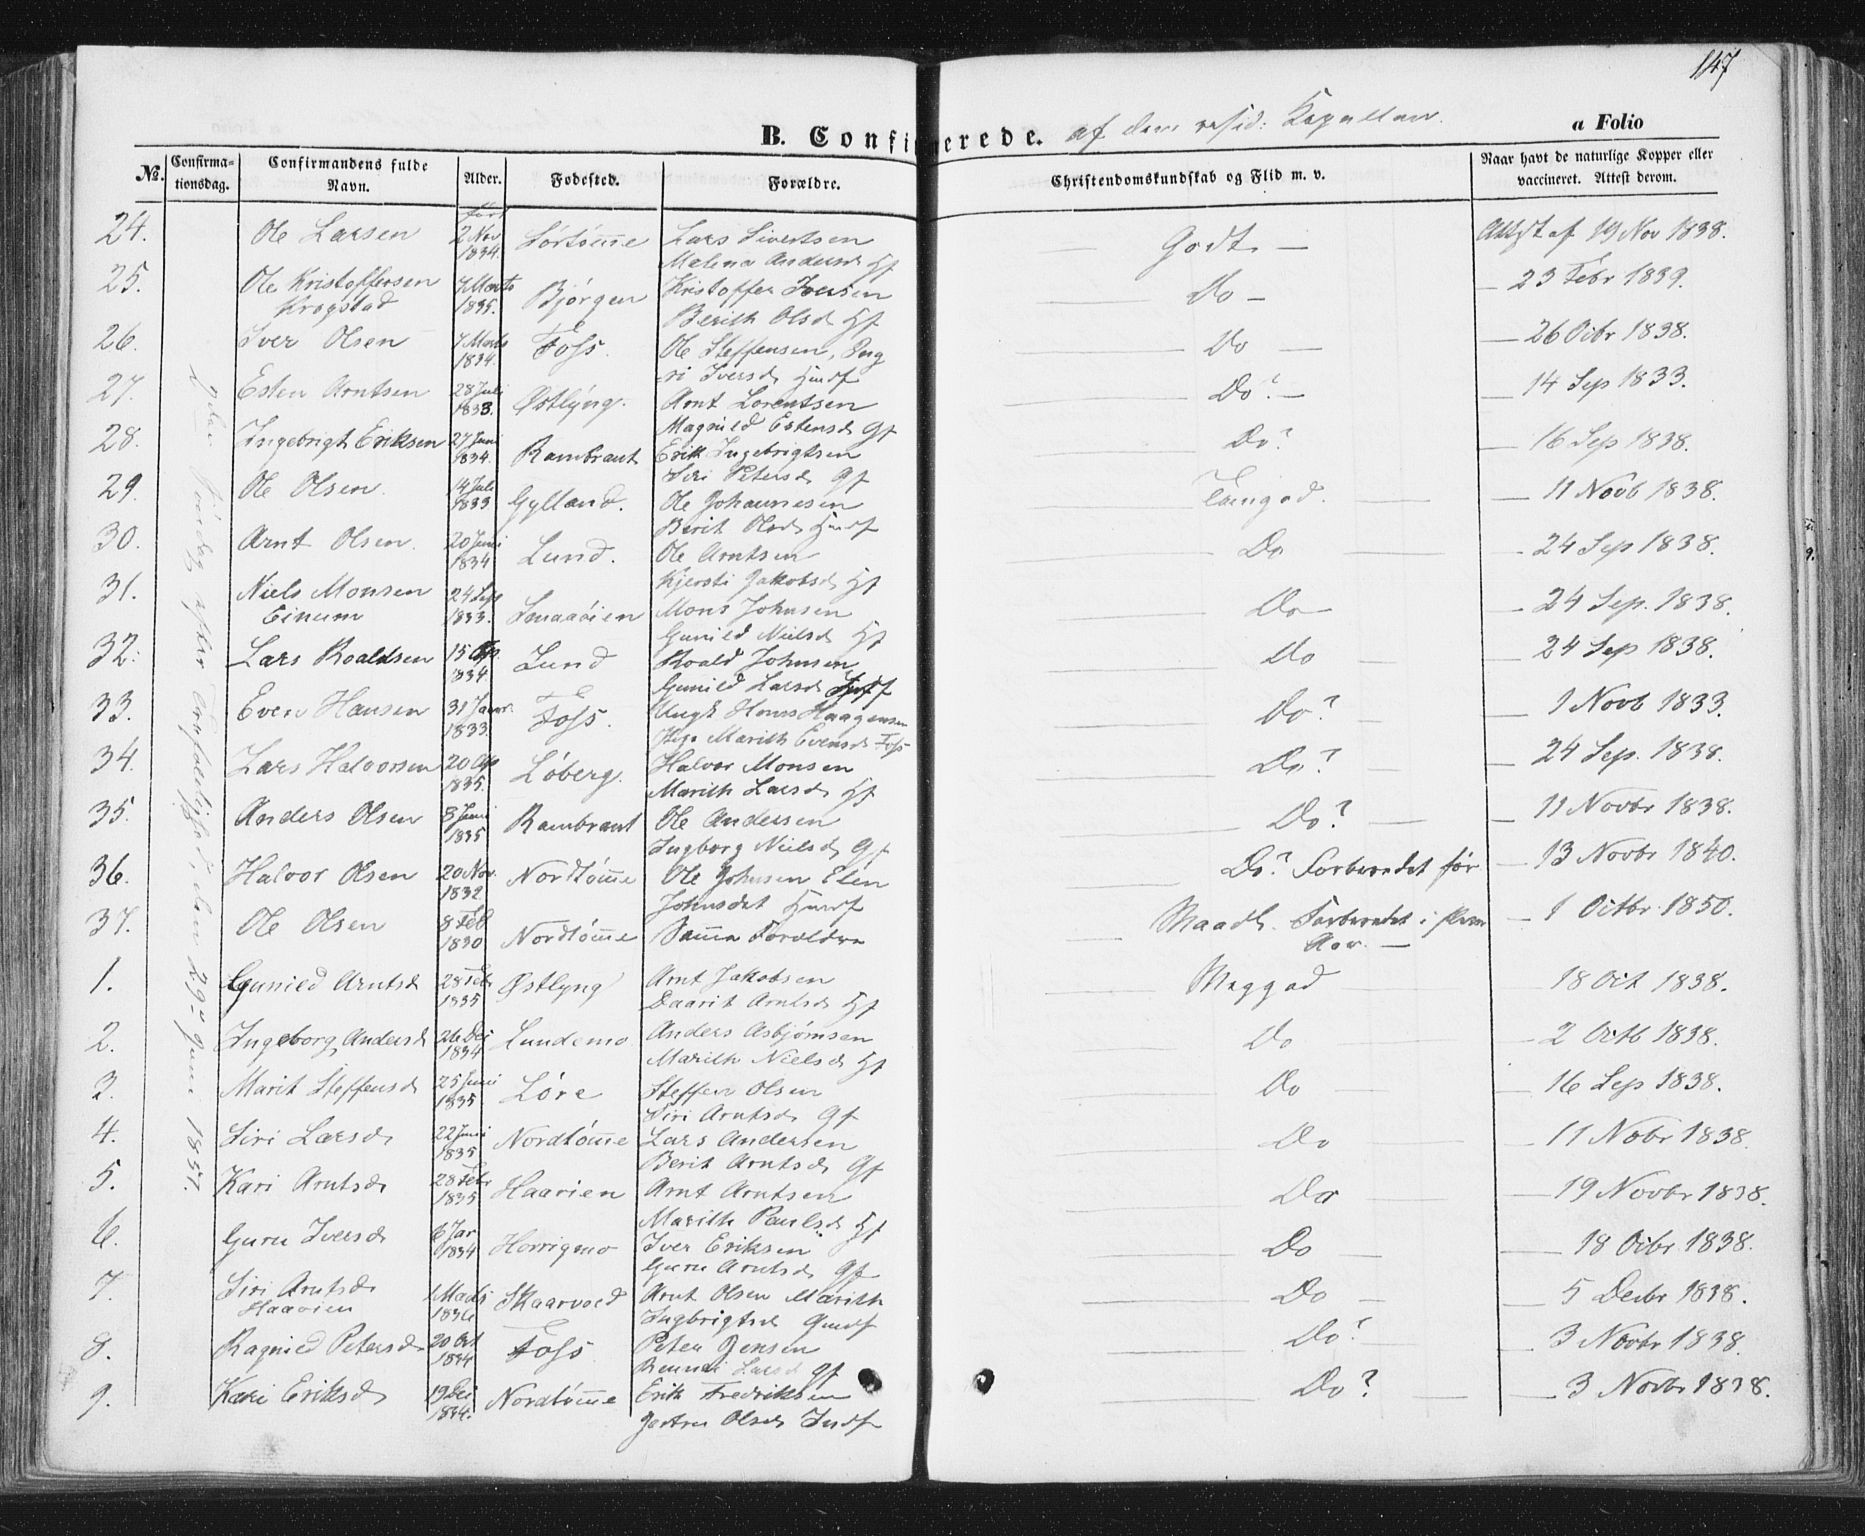 147
B. Confirmerede. af den resid: Kapellan. a Folio
No. Confirmationsdag. Confirmandens fulde Navn. Alder. Fødested. Forældre. Christendomskundskab og Flid m. v. Naar havt de naturlige Kopper eller vaccineret. Attest derom.
9de Søndag efter Trefoldighed, den 29de Juni 1851.
24. Ole Larsen født 2 Nov 1834. Sørtømme Lars Sivertsen
Malena Andersd Hf — Godt — Attest af 19 Nov 1838.
25. Ole Kristoffersen Krogstad 7 Marts 1835. Bjørgen Kristoffer Iversen
Berith Olsd Hf — Do — — 23 Febr 1839.
26. Iver Olsen 7 Marts 1834. Foss. Ole Steffensen, Ing
ri Iversd Huusf — Do — — 26 Octbr 1838.
27. Esten Arntsen 28 Juli 1833. Østlyng. Arnt Lorentsen
Magnild Estensd Gf — Do? — — 14 Sep 1833.
28. Ingebrigt Eriksen 27 Juni 1834. Rambraut Erik Ingebrigtsen
Siri Petersd Gf — Do? — 16 Sep 1838.
29. Ole Olsen. 14 Juli 1833 Gylland. Ole Johannesen
Berit Olsd Huusf — Temgod. — — 11 Novb 1838.
30. Arnt Olsen. 20 Juni 1834 Lund. Ole Arntsen
Kjersti Jakobsd Hf — Do — - 24 Sep 1838.
31. Niels Monsen Einum 24 Sep 1833. Smaaøien Mons Johnsen
Gunild Nielsd Hf — Do — - 24 Sep. 1838.
32. Lars Roaldsen 15 Ap. 1834. Lund Roald Johnsen
Gunild Larsd — Do — - 24 Sep 1838.
33. Even Hansen 31 Janur. 1833. Foss. Ungk Hans Haagensen
Pige Marith Evensd Foss — Do? — — 1 Novb 1833.
34. Lars Halvorsen 20 Ap 1835. Løberg. Halvor Monsen
Marith Larsd Hf — Do? — - 24 Sep. 1838.
35. Anders Olsen 8 Juni 1835 Rambraut Ole Andersen
Ingborg Nielsd Gf — Do? — — 11 Novbr 1838.
36. Halvor Olsen 20 Nov. 1832 Nordtømme Ole Johnsen Elen
Johnsdat Huusf Do? Forberedet før — 13 Novbr 1840.
37. Ole Olsen 8 Feb 1830 Nordtømme Samme Forældre Maadl. Forberedet i flere
Aar. — — 1 Octbr. 1850.
1. Gunild Arntsd 28 Feb 1835 Østlyng Arnt Jakobsen
Daarit Arntsd Hf — Meggod — 18 Oct 1838.
2. Ingeborg Andersd 26 Dec 1834 Lundemo Anders Asbjørnsen
Marith Nielsd Hf — Do — — 2 Octb 1838.
3. Marit Steffensd 25 Juni 1835 Løre Steffen Olsen
Siri Arntsd Gf — Do — — 16 Sep 1838.
4. Siri Larsd 22 Juni 1835 Nordtømme Lars Andersen
Berit Arntsd Gf — Do — — 11 Nobr 1838
5. Kari Arntsd 28 Febr 1835 Haarien Arnt Arntsen
Marith Paulsd Hf — Do — — 19 Novbr 1838.
6. Guru Iversd 6 Jan 1834 Horrigmo Iver Eriksen
Guru Arntsd Gf — Do — — 18 Octbr 1838.
7. Siri Arntsd Haaøien 1 Mads Skaarvold Arnt Olsen Marith
Ingbrigtsd — Do — — 5 Decbr 1838.
8. Ragnild Petersd 20 Oct 1834 Foss Peter Jensen
Larsd Gf — Do? — 3 Novbr 1838.
9. Kari Eriksd 19 Dec 1834. Nordtømme Erik Fredriksen
Olsd Indf — Do? — — 3 Novbr 1838.